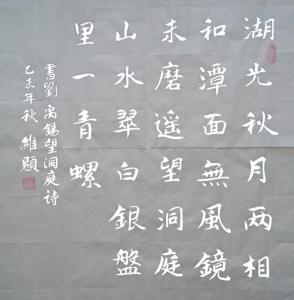 湖光秋月两相
和潭面無風鏡
未磨遥望洞庭
山水翠白銀盤
里一青螺
書劉禹錫望洞庭詩
乙未年秋 維顯